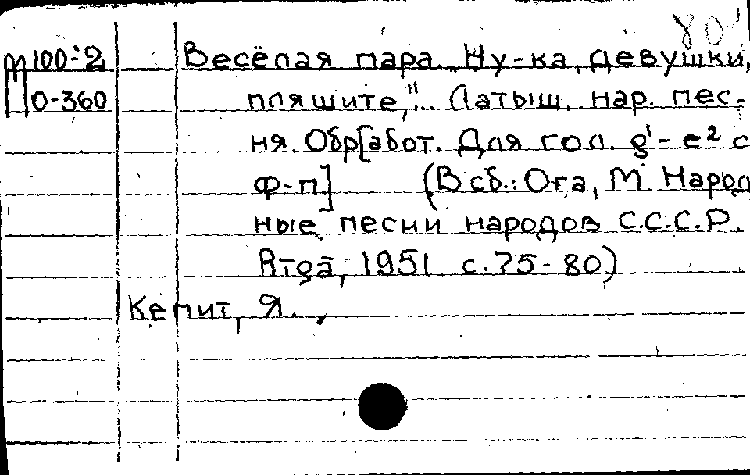 80
М 100-2 Весёлая пара „Ну-ка, девушки,
0-360 пляшите," Латыш. нар. пес-
ня. Обр[абот. Для гол. g¹-e² с
ф-п] (В сб.: Ога, М. Народ
ные песни народов С.С.С.Р.
Rīgā, 1951 с.75-80)
Кепит, Я.